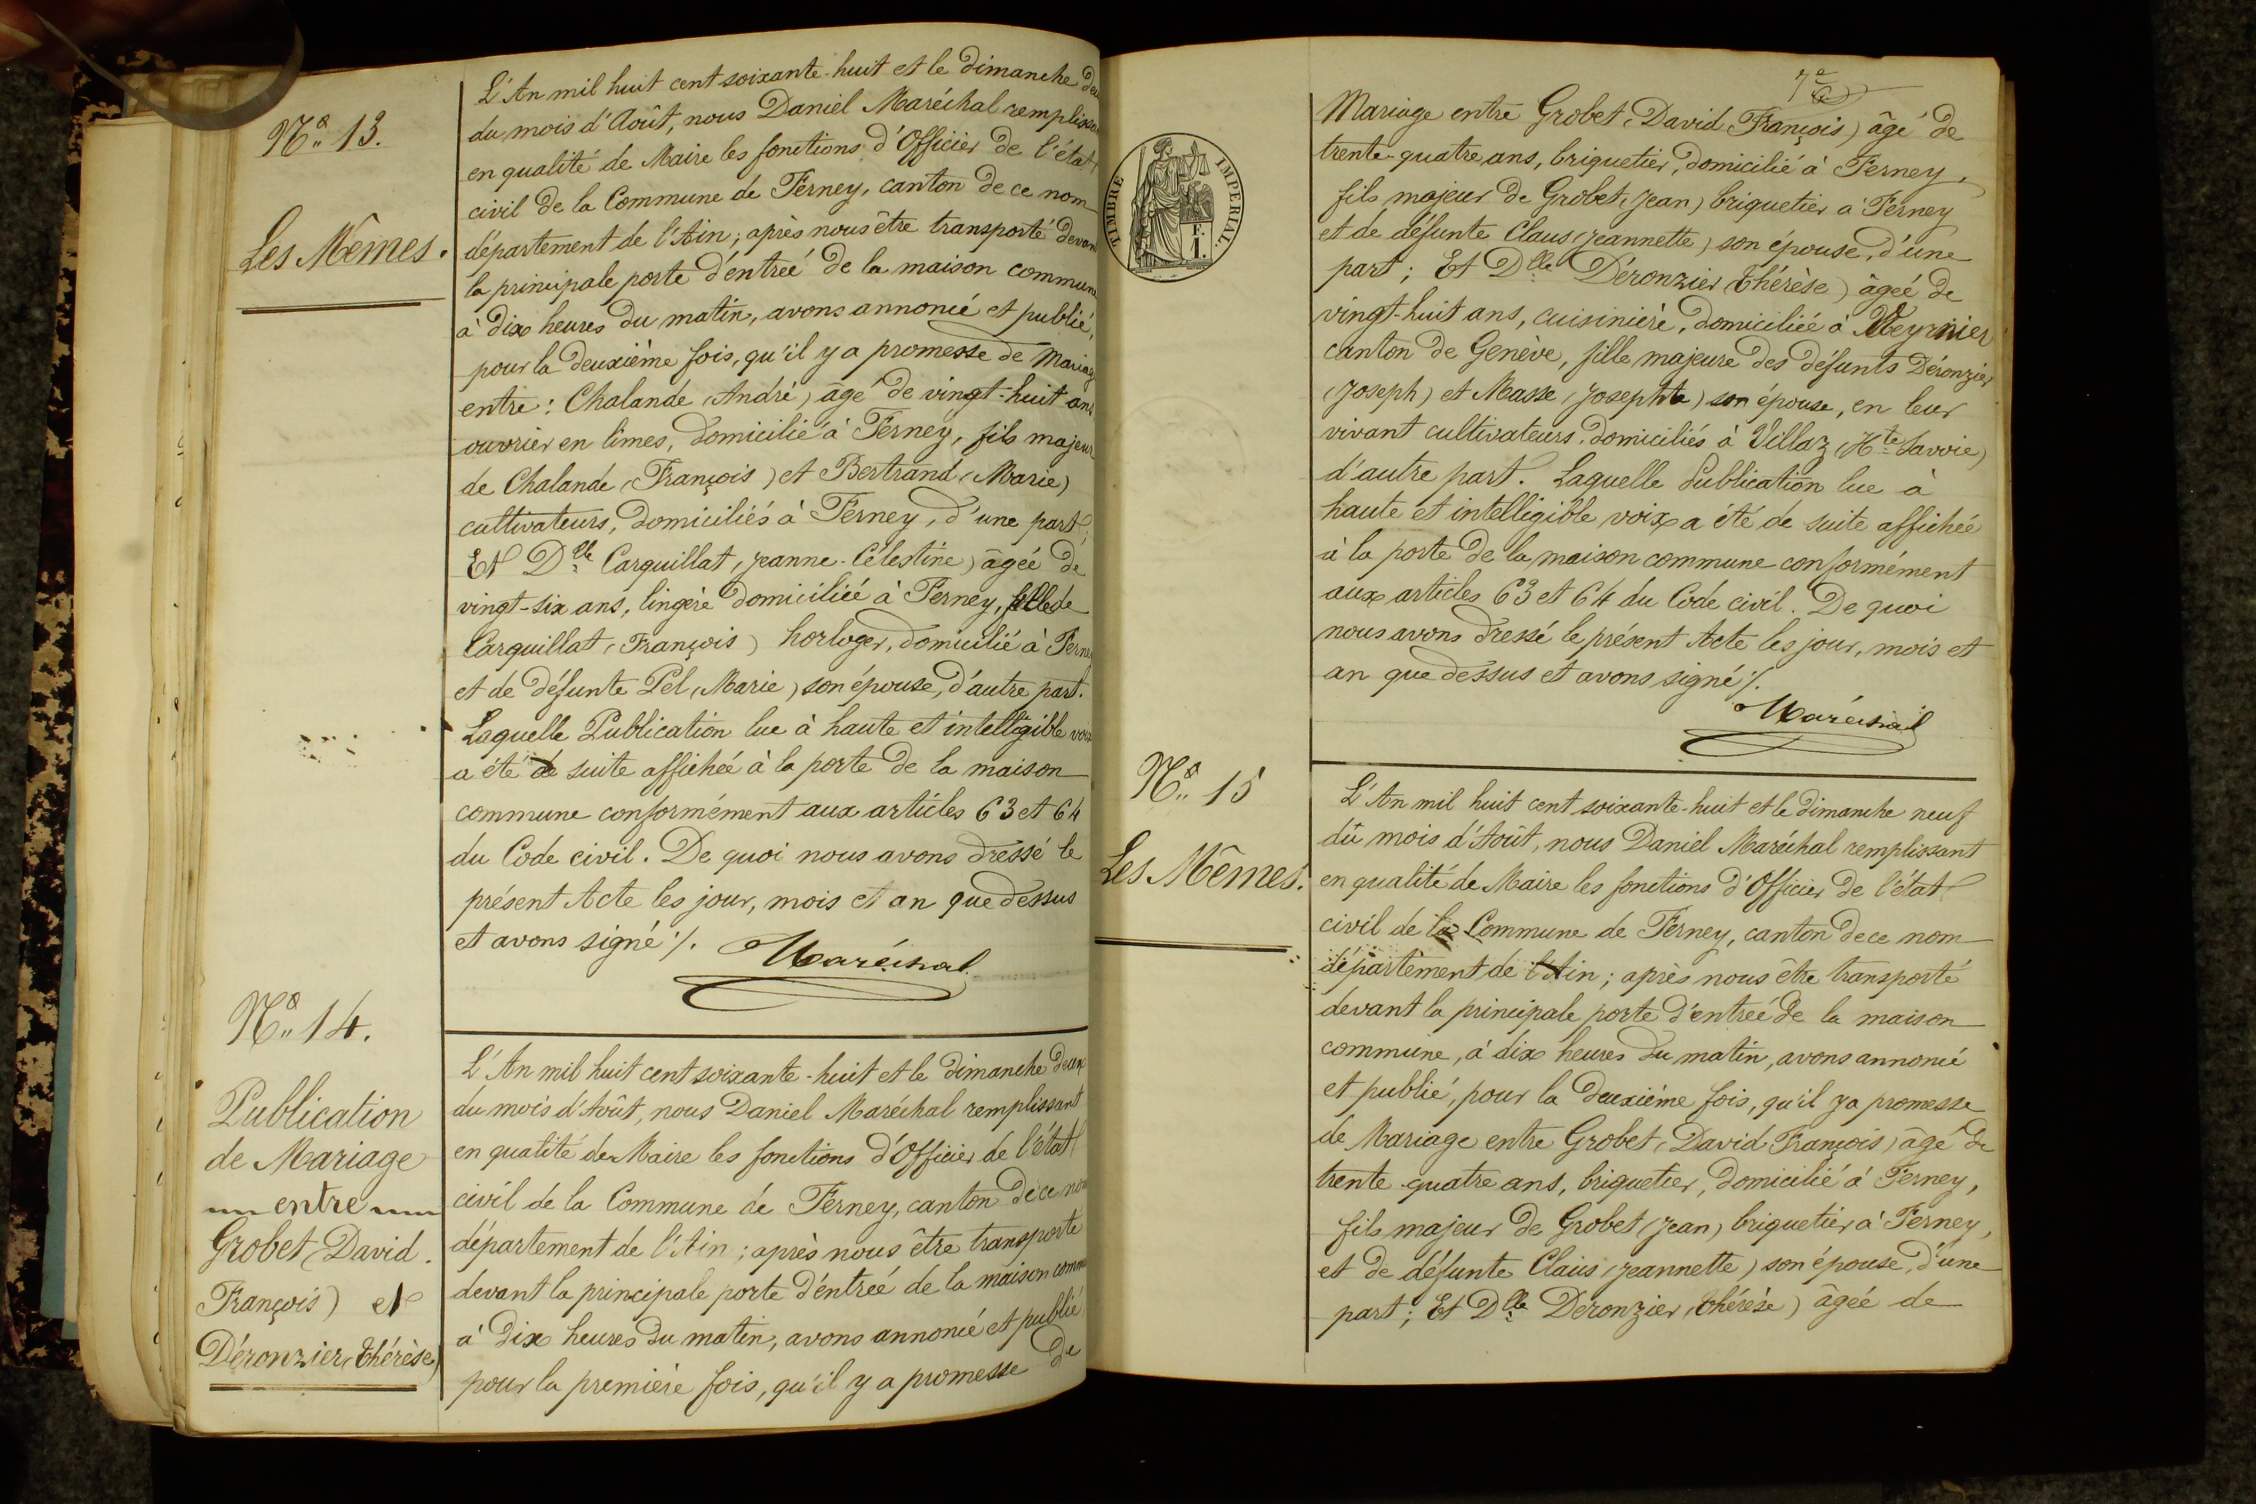 N.o 13.
Les Mêmes.
L'An mil huit cent soixante-huit et le dimanche deux
du mois d'Août, nous Daniel Maréchal remplissant
en qualité de Maire les fonctions d'Officier de l'état
civil de la Commune de Ferney, canton de ce nom
département de l'Ain; après nous être transporté devant
la principale porte d'entrée de la maison commune
à dix heures du matin, avons annoncé et publié,
pour la deuxième fois, qu'il y a promesse de Mariage
entre: Chalande (André) âgé de vingt-huit ans
ouvrier en limes, domicilié à Ferney, fils majeur
de Chalande (François) et Bertrand (Marie)
cultivateurs, domiciliés à Ferney, d'une part;
Et Dlle Carquillat (Jeanne-Célestine) âgée de
vingt-six ans, lingère domiciliée à Ferney, fille de
Carquillat (François) horloger, domicilié à Ferney
et de défunte Pel (Marie) son épouse, d'autre part.
Laquelle Publication lue à haute et intelligible voix
a été de suite affichée à la porte de la maison
commune conformément aux articles 63 et 64
du Code civil. De quoi nous avons dressé le
présent Acte les jour, mois et an que dessus
et avons signé ./.
Maréchal
N.o 14.
Publication
de Mariage
entre
Grobet (David
François) et
Déronzier (Thérèse)
L'An mil huit cent soixante-huit et le dimanche deux
du mois d'Août, nous Daniel Maréchal remplissant
en qualité de Maire les fonctions d'Officier de l'état
civil de la Commune de Ferney, canton de ce nom
département de l'Ain; après nous être transporté
devant la principale porte d'entrée de la maison commune
à dix heures du matin, avons annoncé et publié
pour la première fois, qu'il y a promesse de
7e
TIMBRE IMPÉRIAL.
F.
1.
Mariage entre Grobet (David François) âgé de
trente-quatre ans, briquetier, domicilié à Ferney,
fils majeur de Grobet (Jean) briquetier à Ferney
et de défunte Claus (Jeannette) son épouse, d'une
part; Et Dlle Déronzier (Thérèse) âgée de
vingt-huit ans, cuisinière, domiciliée à Meyrnier
canton de Genève, fille majeure des défunts Déronzier
(Joseph) et Masse (Josephte) son épouse, en leur
vivant cultivateurs domiciliés à Villaz (Hte Savoie)
d'autre part. Laquelle Publication lue à
haute et intelligible voix a été de suite affichée
à la porte de la maison commune conformément
aux articles 63 et 64 du Code civil. De quoi
nous avons dressé le présent Acte les jour, mois et
an que dessus et avons signé ./.
Maréchal
N.o 15
Les Mêmes.
L'An mil huit cent soixante-huit et le dimanche neuf
du mois d'Août, nous Daniel Maréchal remplissant
en qualité de Maire les fonctions d'Officier de l'état
civil de la Commune de Ferney, canton de ce nom
département de l'Ain; après nous être transporté
devant la principale porte d'entrée de la maison
commune, à dix heures du matin, avons annoncé
et publié, pour la deuxième fois, qu'il y a promesse
de Mariage entre Grobet (David François) âgé de
trente-quatre ans, briquetier, domicilié à Ferney,
fils majeur de Grobet (Jean) briquetier à Ferney,
et de défunte Claus (Jeannette) son épouse, d'une
part; Et Dlle Deronzier (Thérèse) âgée de